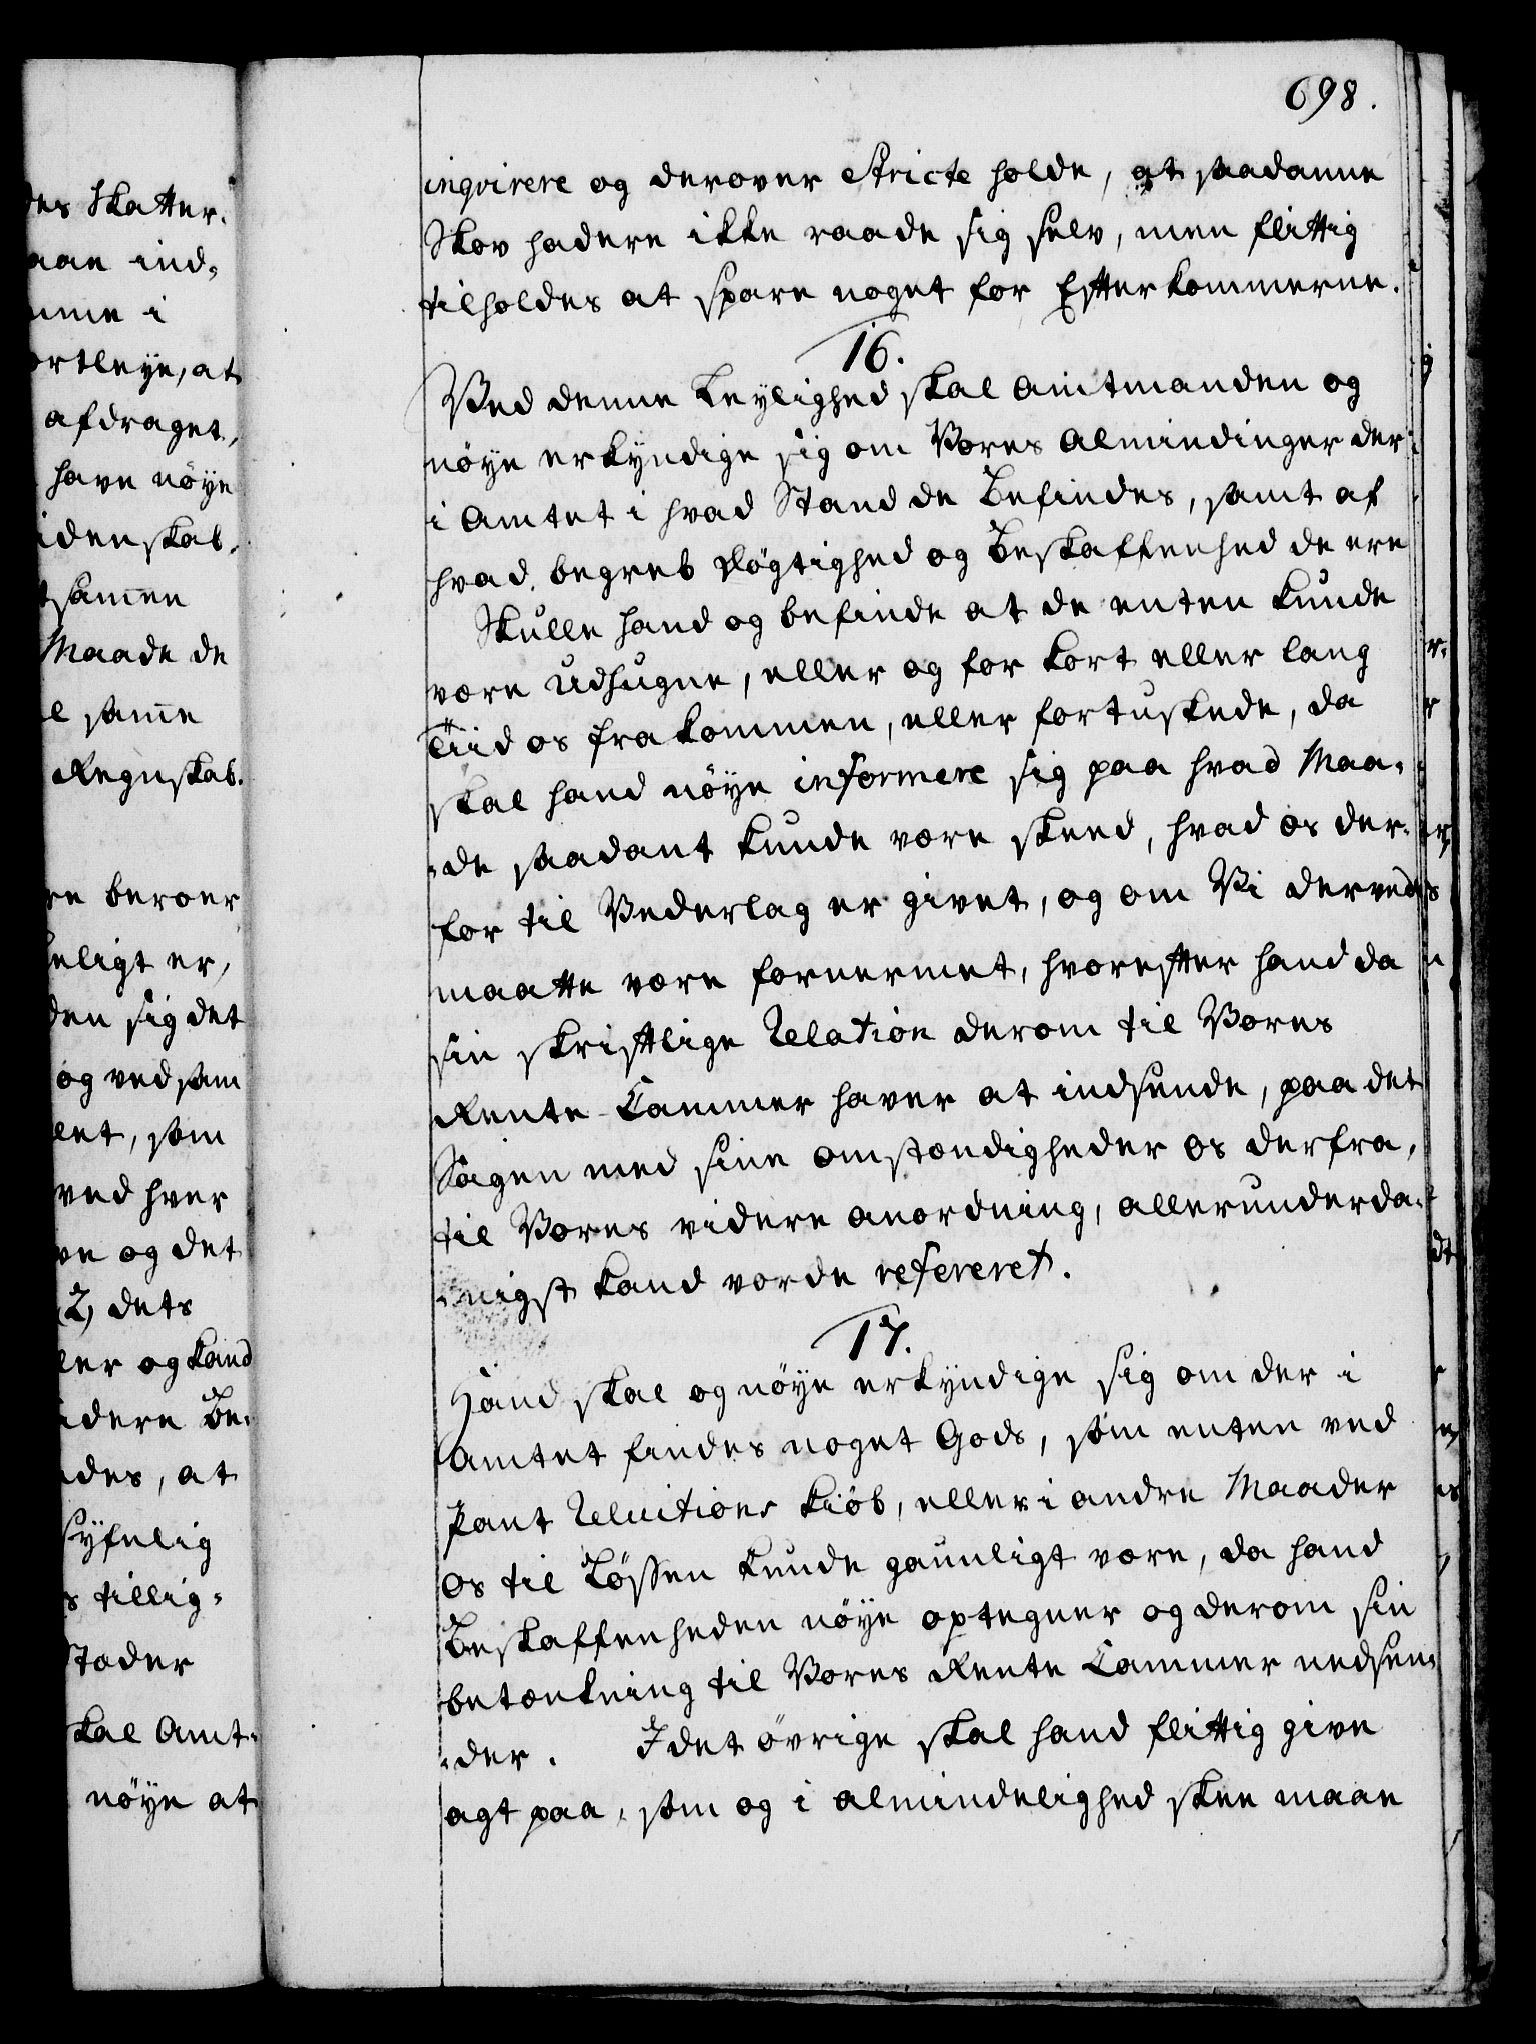 698.
inqvirere og derover stricte holde, at saadanne
Skov hadere ikke raade sig selv, men flittig
tilholdes at spare noget for Efterkommerne.
16.
Ved denne Leylighed skal Amtmanden og
nöye erkyndige sig om Vores Almindinger der
i Amtet i hvad Stand de Befindes, samt af
hvad begreb Vögtighed og Beskaffenhed de ere
Skulle hand og befinde at de enten kunde
være Udhugne, eller og for kort eller lang
Tiid os frakommen, eller fortuskede, da
skal hand nöye informere sig paa hvad Maa-
-de saadant kunde være skeed, hvad os der-
for til Vederlag er givet, og om Vi derved
maatte være fornermet, hvorefter hand da
sin skriftlige Relation derom til Vores
Rente-Cammer haver at indsende, paa det
Sagen med sine omstændigheder os derfra,
til Vores videre anordning, allerunderda-
-nigst kand vorde refereret.
17.
Hand skal og nöye erkyndige sig om der i
Amtet findes noget Gods, som enten ved
Pant Reluitions Kiöb, eller i andre Maader
os til Lössen kunde gaunligt være, da hand
Beskaffenheden nöye optegner og derom sin
betænkning til Vores Rente Cammer nedsen-
-der. I det övrige skal hand flittig give
agt paa, som og i almindelighed skee maae
des Skatter.
aae ind-
mme i
ortleye, at
afdraget,
have nöye
idenskab,
tsamen
Maade de
l same
Regnskab.
re beroer
eligt er,
den sig det
og ved sam
let, som
ved hver
ve og det
2) dets
ler og kand
idere Be-
des, at
syfelig
s tillig-
stæder
skal Amt-
nöye at